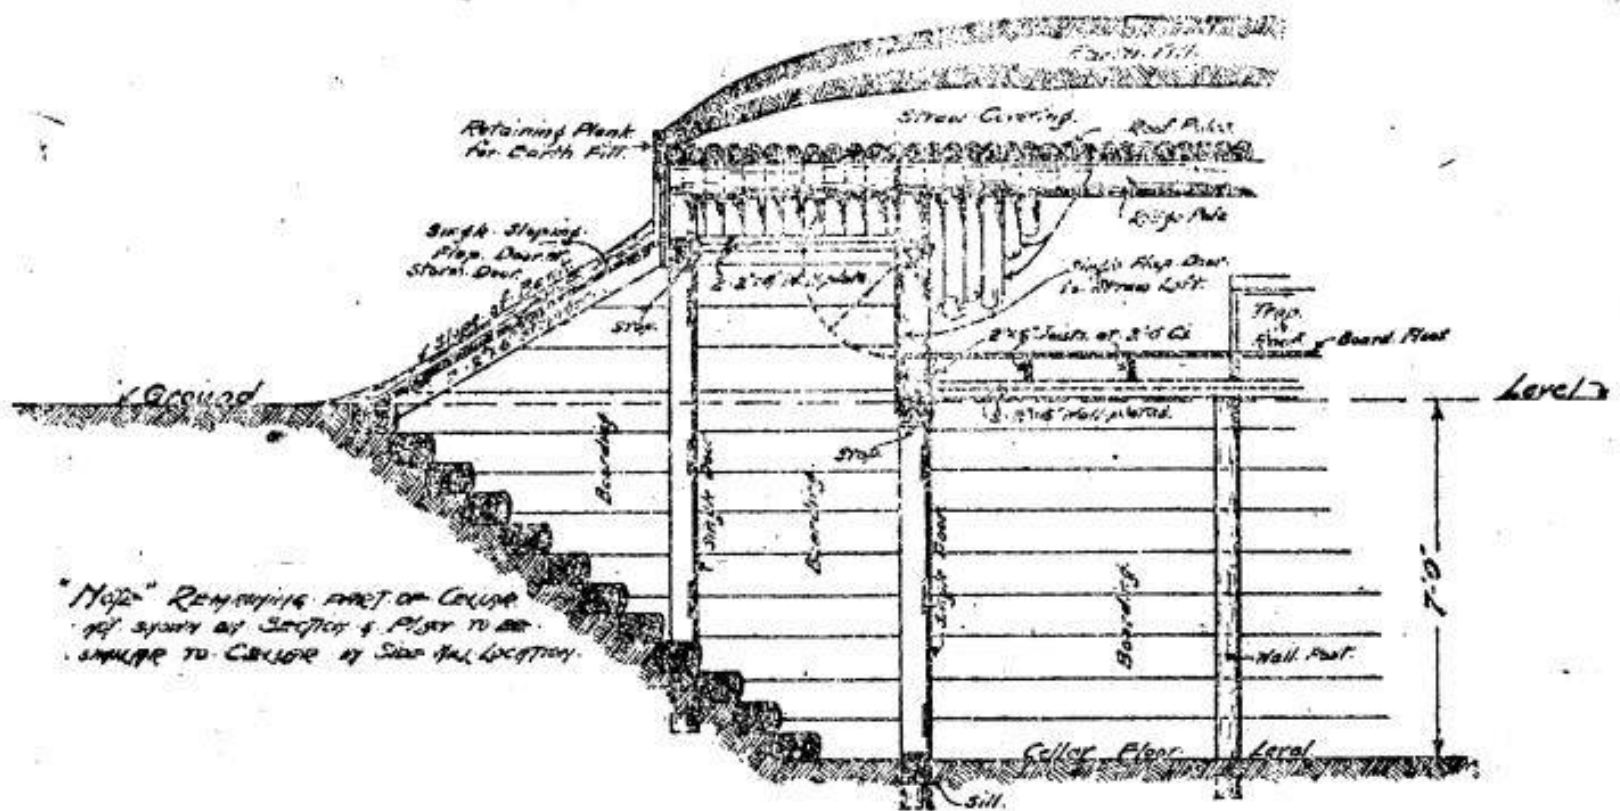 Earth Fill.
Straw Covering.
Roof Poles
Retaining Plank
for Earth Fill.
Ridge Pole
Single Sloping
Flap Door or
Storm Door.
Slope of
2"x6"
Stop.
Single Flap Door
to Straw Loft.
2"x6" Joists at 3'0 Cs
Trap
Board Floor
Ground
Level
Stop
Boarding
Single Door
Boarding.
Single Door
Boarding.
7'-0"
Wall Post.
"Note" Remaining part of Cellar
not shown on Section & Plan to be
similar to Cellar in Side Hill Location.
Cellar Floor Level
Sill.